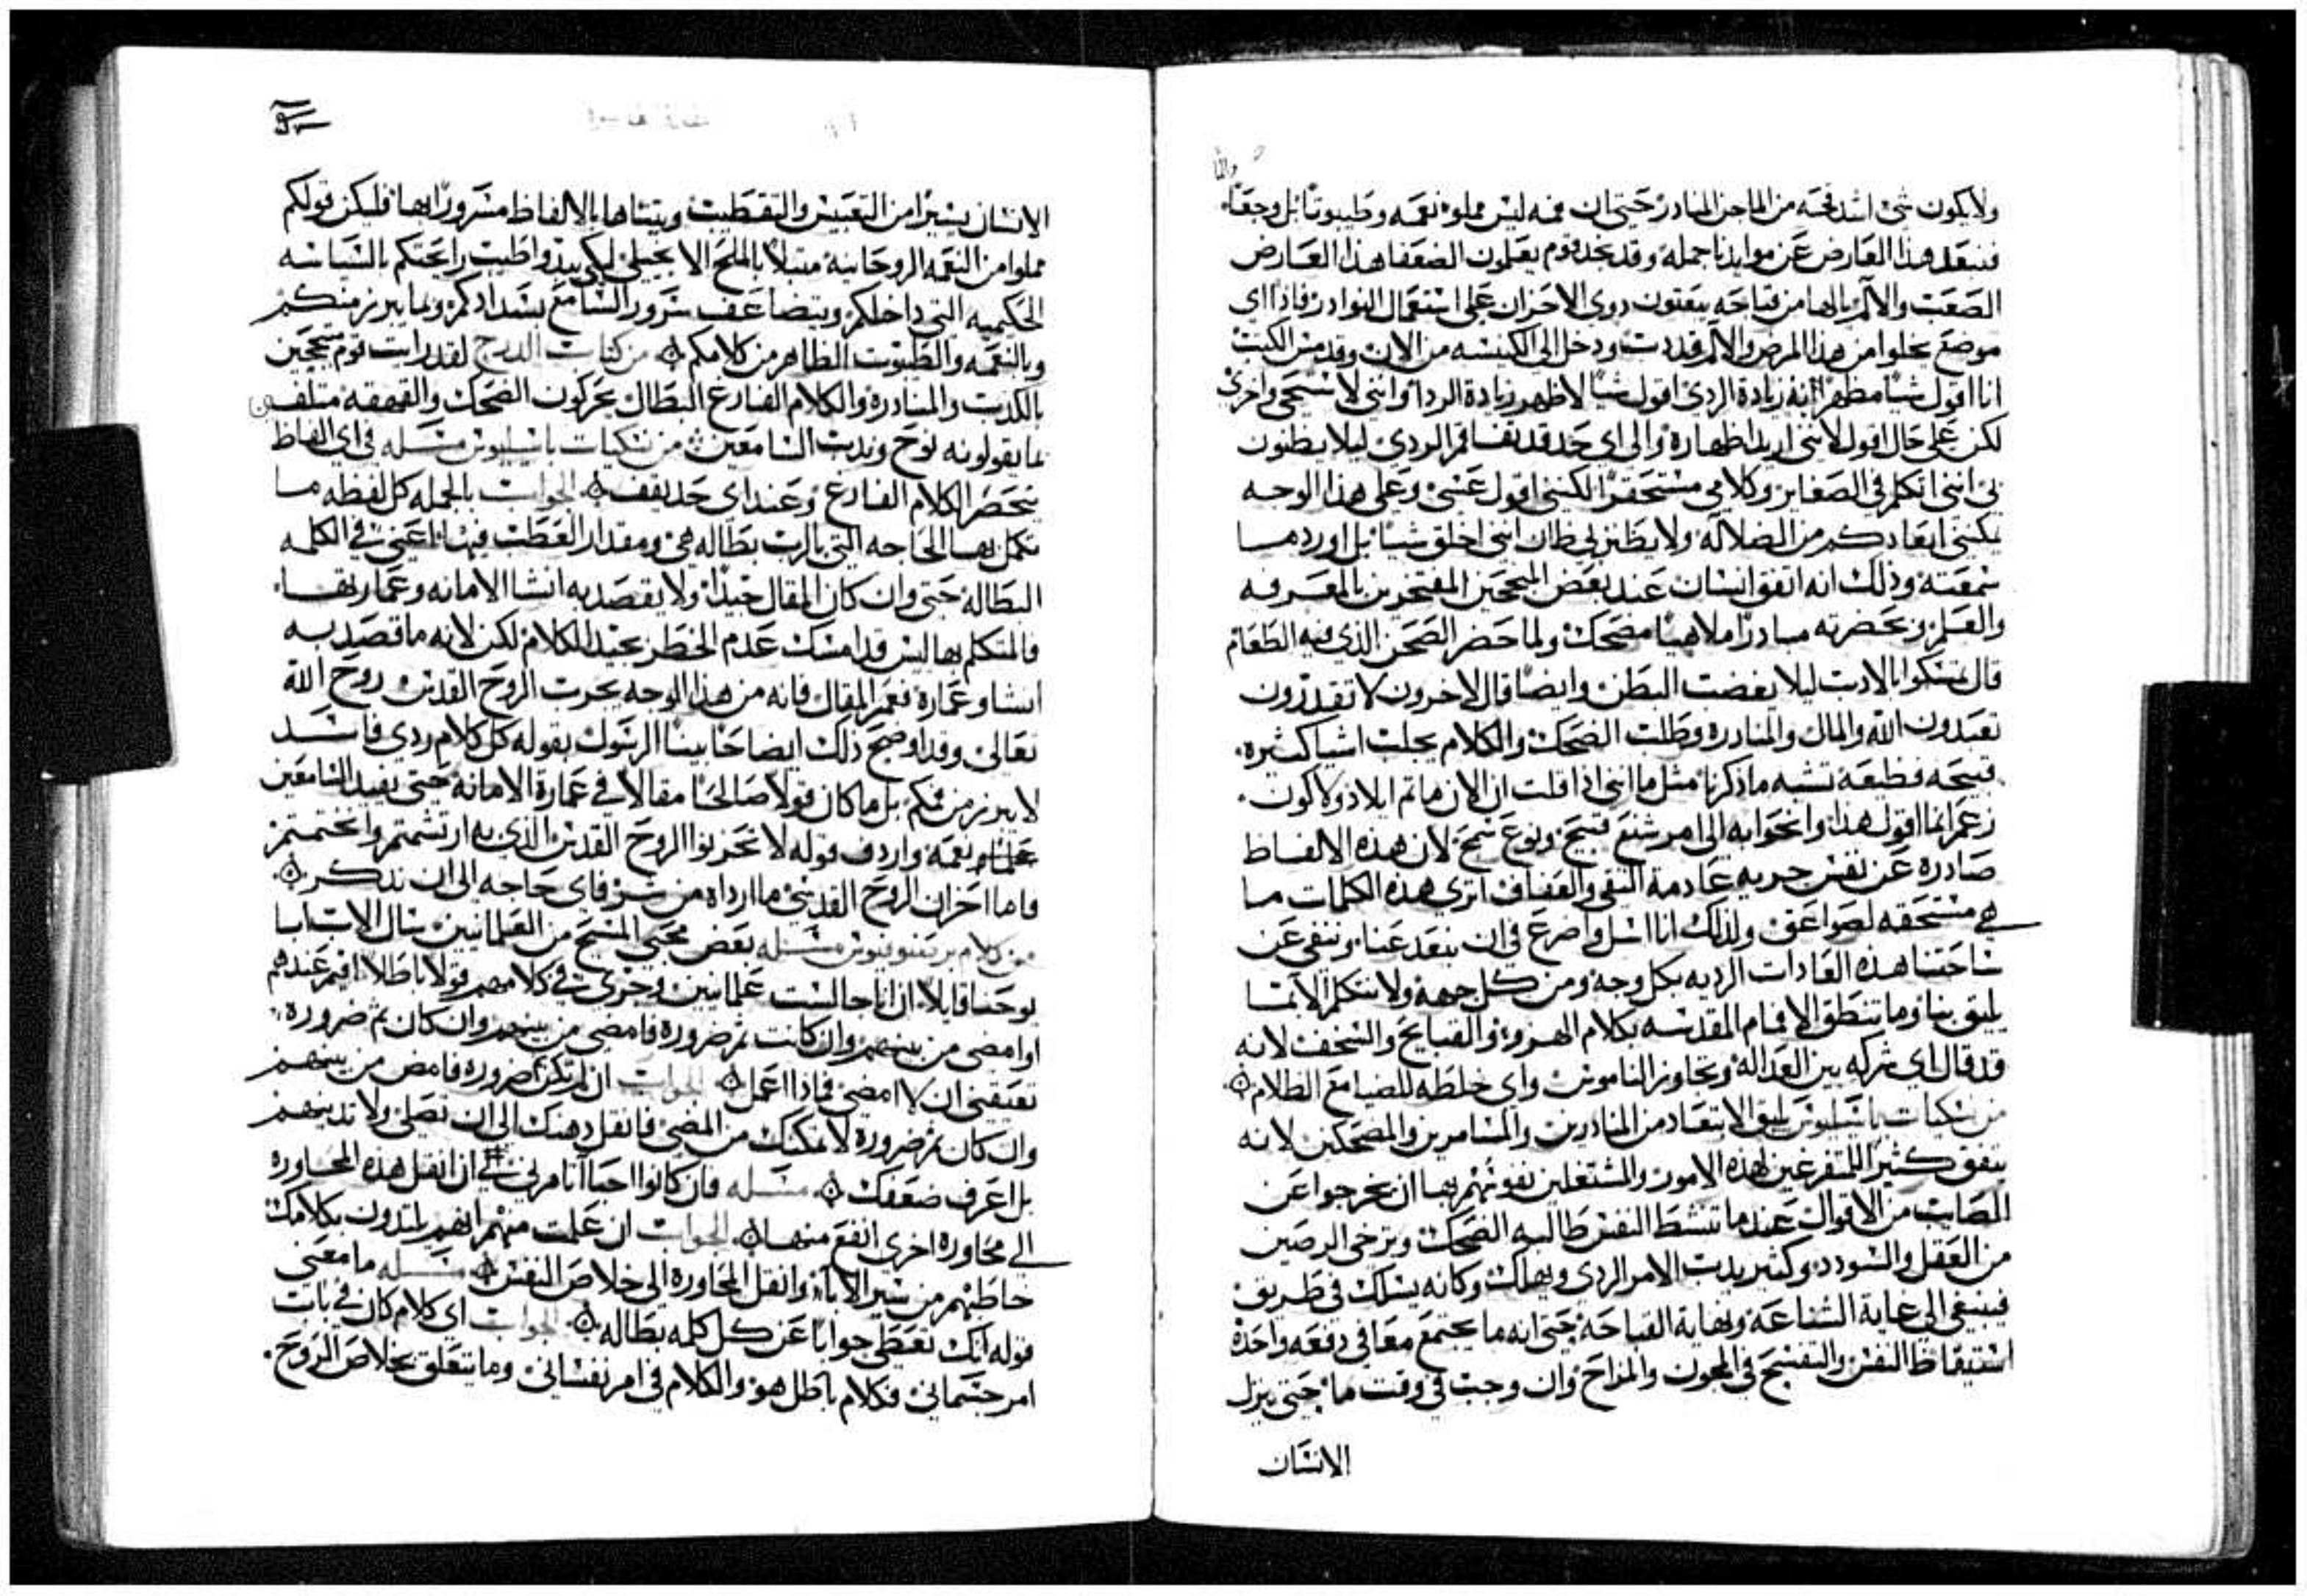 ولا يكون شي اشد قحه من الماجن المنادر حتى ان فمه ليس مملو نعمه وطيبوتا بل وجعًا
فنبعد هذا العارض عن موايدنا جمله وقد نجد قوم يعلمون الضعفا هذا العارض
الصعب والالم يالها من قباحه يبعتون دوي الاحزان على استعمال النوادر فاذا اي
موضع يخلوا من هذا المرض والالم قد دب ودخل الى الكنيسه من الان وقد مس الكتب
انا اقول شيا مظهرًا به زيادة الردي اقول شيا لاظهر زيادة الردا وانني لاستحي واخزى
لكن على حال اقول لانني اريد اظهاره والى اي حد قد تفاقم الردي ليلا يظنون
بي انني اتكلم في الصغاير وكلامي مستحقرًا لكنني اقول عسى وعلى هذا الوجه
يمكنني ابعادكم من الضلاله ولا يظنن بي ظان انني اخلق شيا بل اورد ما
سمعته وذلك انه اتفق انسان عند بعض المبجحين المفتخرين بالمعرفه
والعلم وبحضرته منادرًا ملاهيًا مضحك ولما حضر الصحن الذي فيه الطعام
قال تمسكوا بالادب ليلا يغضب البطن وايضًا قال الاخرون لا تقدرون
تعبدون الله والمال والمنادره وطلب الضحك والكلام يجلب اشيا كثيره
قبيحه فظيعه تشبه ما ذكرنا مثل ما انني اذا قلت ان الان ماتم ايلاد ولا كون
زعم انما اقول هذا وانحوا به الى امر شنع قبيح ونوع سمج لان هذه الالفاظ
صادره عن نفس جريه عادمة التقى والعفاف اترى هذه الكلمات ما
هي مستحقه لصواعق ولذلك انا اسل واضرع في ان نبعد عنا وننفي عن
ساحتنا هذه العادات الرديه بكل وجه ومن كل جهه ولا نتكلم الا بما
يليق بنا وما تنطق الافمام المقدسه بكلام الهزو والقبايح والسخف لانه
قد قال اي شركه بين العداله وتجاوز الناموس واي خلطه للضيا مع الظلام
من نسكيات باسيليوس يليق الابتعاد من المنادرين والمسامرين والمضحكين لانه
يتفق كثيرًا للمتفرغين لهذه الامور والمشتغلين نفوسهم بها ان يخرجوا عن
الصايب من الاقوال عندما تنشط النفس طالبه الضحك وترخي الرصين
من العقل والسودد وكثير يدب الامر الردي ويهلك وكانه يسلك في طريق
فينبغي الى غاية الشناعه ونهاية القباحه حتى انه ما يجتمع معا في دفعه واحده
استيقاظ النفس والتفسح في المجون والمزاح وان وجب في وقت ما حتى ينزل
الانسان
الانسان يسيرًا من التعبيس والتقطيب ويتناها بالالفاظ مسرورًا بها فليكن قولكم
مملوا من النعمه الروحانيه متبلاً بالملح الانجيلي لكي يبدوا طيب رايحتكم بالسياسه
الحكميه التي داخلكم ويتضاعف سرور السامع بسدادكم وبما يبرز منكم
وبالنعمه والطيبوت الظاهر من كلامكم من كتاب الدرج لقد رايت قوم متبججين
بالكذب والمنادره والكلام الفارغ البطال يحركون الضحك والقهقهه متلفين
بما يقولونه نوح وندب السامعين من نسكيات باسيليوس مسله في اي الفاظ
ينحصر الكلام الفارغ وعند اي حد يقف الجواب بالجمله كل لفظه ما
تكمل بها الحاجه التي بالرب بطاله هي ومقدار العطب فيها اعني في الكلمه
البطاله حتى وان كان المقال جيدًا ولا يقصد به انشا الامانه وعمارتها
فالمتكلم بها ليس قد امسك عدم الخطر بجيد الكلام لكن لانه ما قصد به
انشا وعمارة نعم المقال فانه من هذا الوجه يحزن الروح القدس روح الله
تعالى وقد اوضح ذلك ايضاحًا بينًا الرسول بقوله كل كلام ردي فاسد
لا يبرز من فمكم بل ما كان قولاً صالحًا مقالا في عمارة الامانه حتى يفيد السامعين
نعمه واردف قوله لا تحزنوا الروح القدس الذي به ارتشمتم واختتمتم
فاما احزان الروح القدس ما ارداه من شر فاي حاجه الى ان نذكر
من كلام برصنوفيوس مسله بعض محبي المسيح من العلمانيين سال الاب ابا
يوحنا قايلاً ان انا جالست علمانيين وجرى في كلامهم قولاً باطلاً اقيم عندهم
او امضى من بينهم وان كانت ثم ضرورة فامضي من بينهم وان كان ثم ضروره
تعيقني ان لا امضي فماذا اعمل الجواب ان لم تكن ثم ضروره فامض من بينهم
وان كان ثم ضرورة لا تمكنك من المضي فانقل ذهنك الى ان تصلي ولا تدينهم
بل اعرف ضعفك مسله فان كانوا احبا اتامرني في ان انقل هذه المحاوره
الى محاوره اخرى انفع منها الجواب ان علمت منهم انهم يلتذون بكلامك
خاطبهم من سير الاباء وانقل المحاوره الى خلاص النفس مسله ما معنى
قوله انك تعطي جوابًا عن كل كلمه بطاله الجواب اي كلام كان في باب
امر جسماني فكلام باطل هو والكلام في امر نفساني وما يتعلق بخلاص الروح